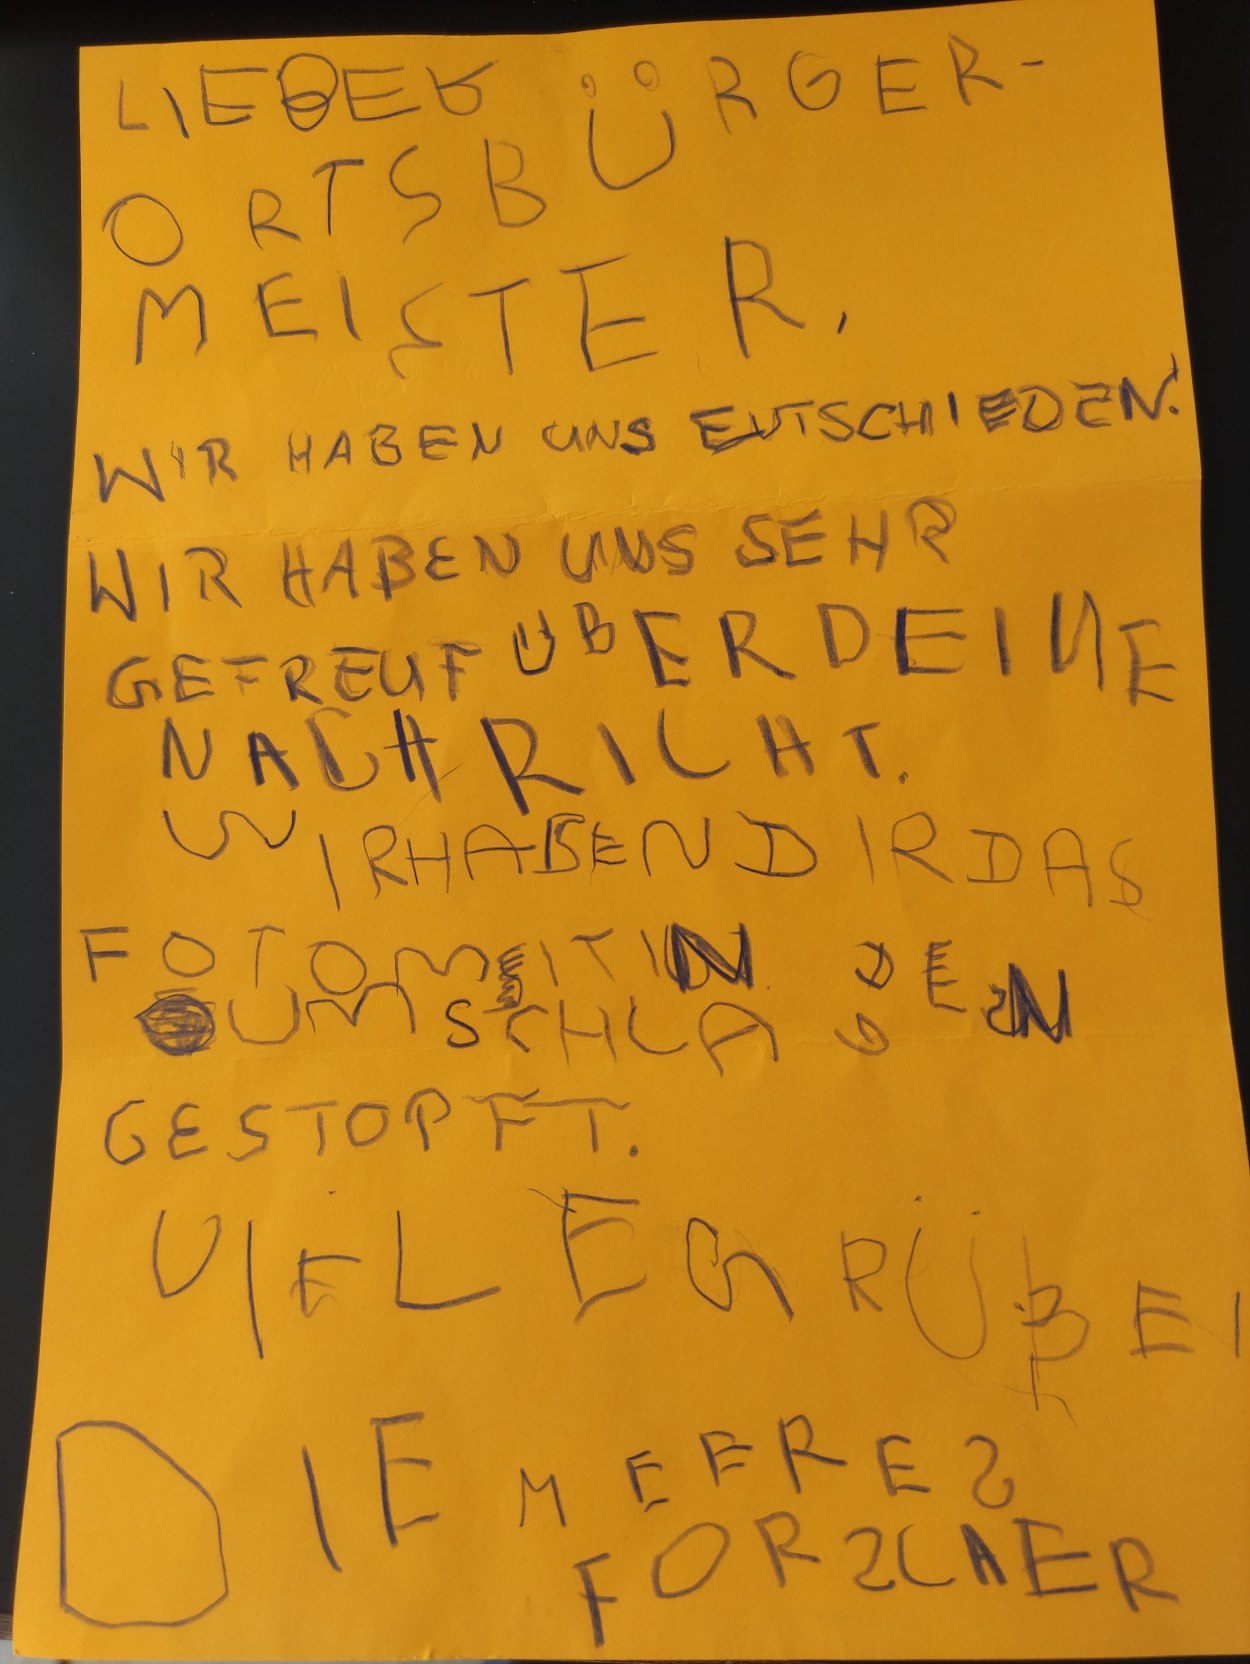 LIEBER ÜRGER-
ORTSB
MEISTER,
WIR HABEN UNS ENTSCHIEDEN!
WIR HABEN UNS SEHR
GEFREUF ÜBER DEINE
NACHRICHT.
WIR HABEN DIR DAS
FOTO MEIT IN DEN
UMSCHLAG
GESTOPFT.
VIELE GRÜßE
DIE MEERES
FORSCHER